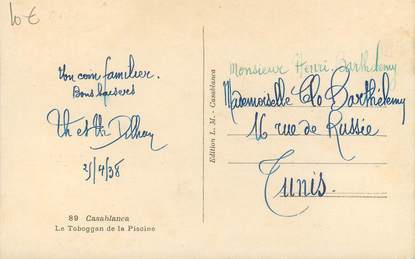 10 €
Un coin familier.
Bons baisers
3/4/38
89 Casablanca
Le Toboggan de la Piscine
Edition L. M. - Casablanca
Monsieur Henri Barthélemy
Mademoiselle Clo Barthélemy
16 rue de Russie
Tunis.